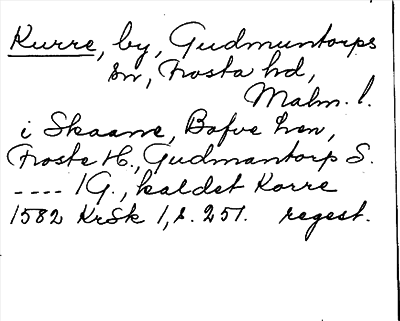 Kurre, by, Gudmuntorps
sn, Frosta hd,
Malm. l.
i Skaane, Bosve Len,
Froste H., Gudmantorp S.
---- 1G., kaldet Korre
1582 KrSk 1, s. 251. regest.